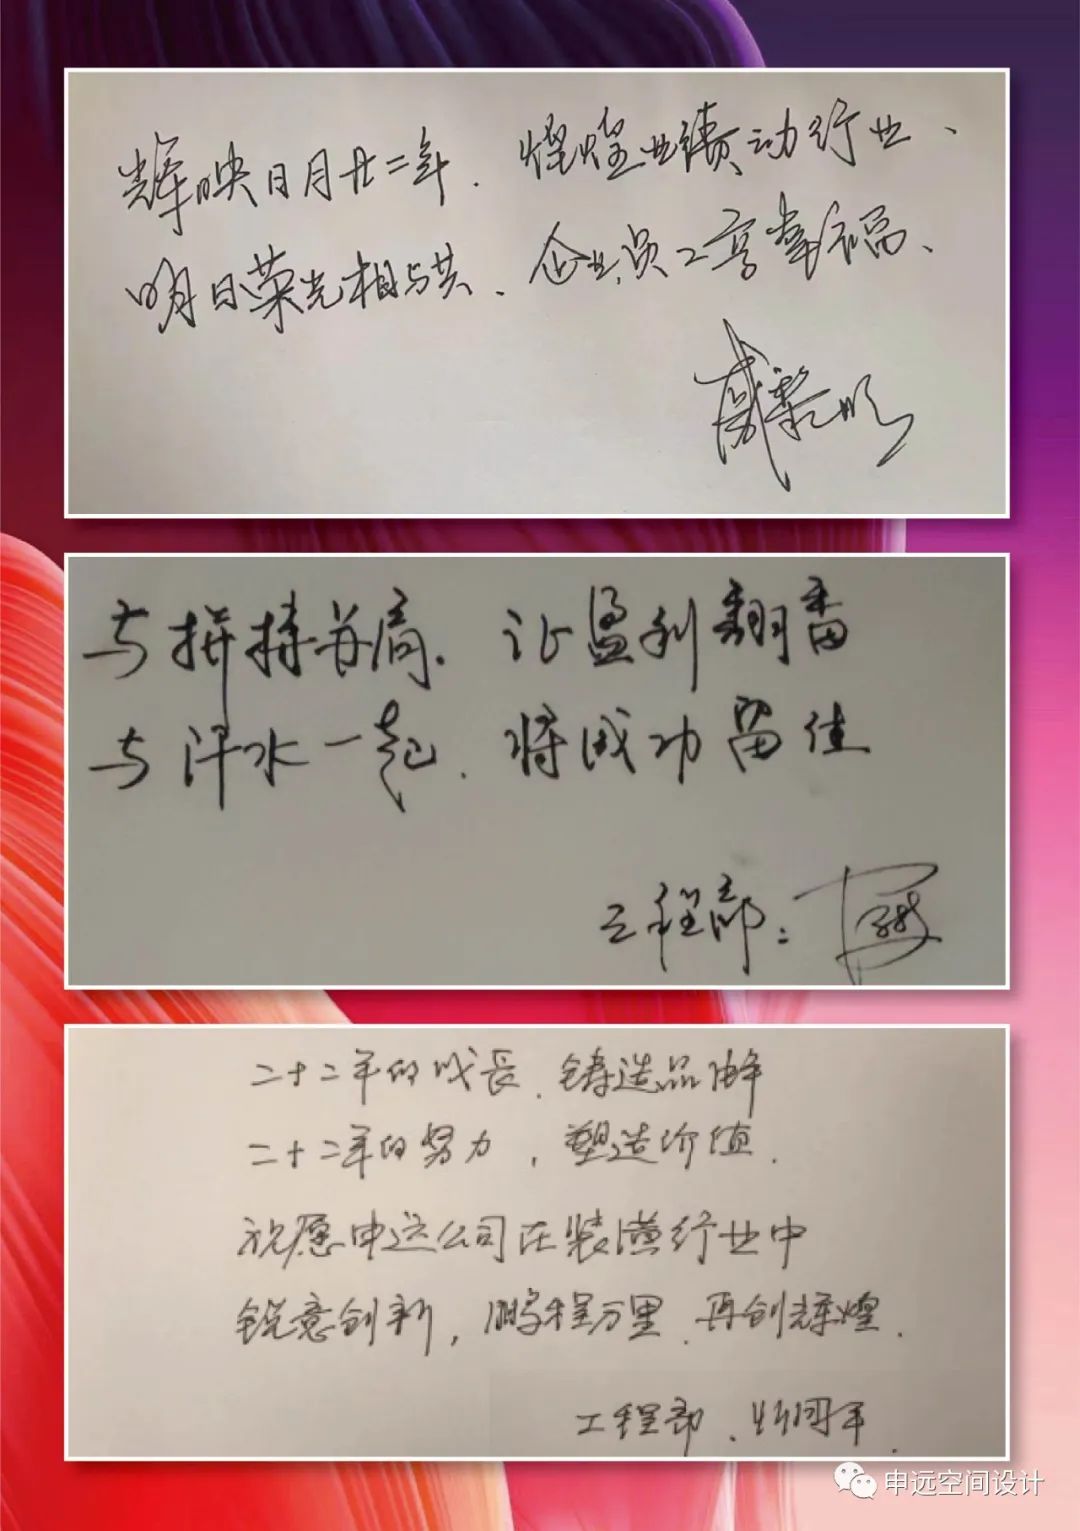 辉映日月廿二年、煌煌业绩动行业、
明日荣光相与共、企业员工享幸福、
与拼搏并肩、让盈利翻番
与汗水一起、将成功留住
工程部:
二十二年的成长、铸造品牌
二十二年的努力,塑造价值、
祝愿申远公司在装潢行业中
锐意创新,鹏程万里、再创辉煌、
工程部、
申远空间设计